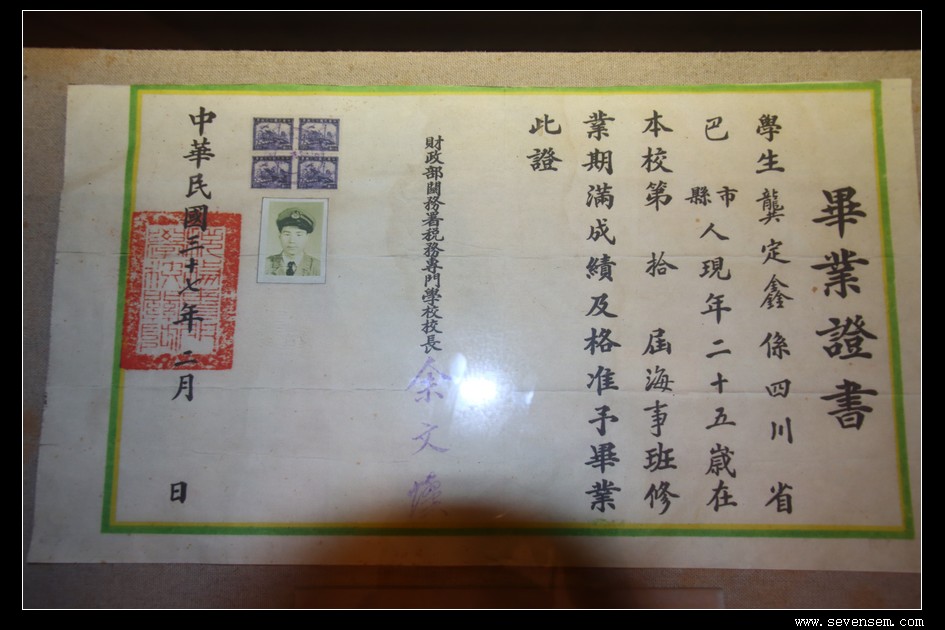 畢業證書
學生龔定鑫係四川省
巴縣市人現年二十五歲在
本校第拾屆海事班修
業期滿成績及格准予畢業
此證
財政部關務署稅務專門學校校長
余文
中華民國三十七年二月 日
www.sevensem.com